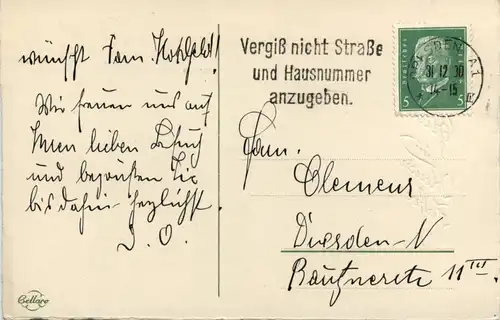 wünscht Fam. 
Wir freuen uns auf
Ihren lieben Besuch
und begrüßen Sie
bis dahin herzlichst.
Cellaro
Vergiß nicht Straße
und Hausnummer
anzugeben.
DRESDEN A1
31.12.30
14-15
Deutsches Reich
5 5
Fam.
Clemens
Dresden-N
Bautznerstr 11